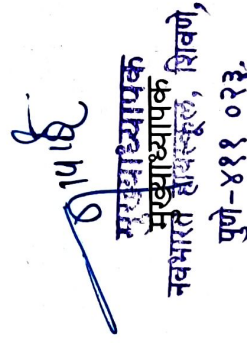 मुख्याध्यापक
मुख्याध्यापक
नवभारत हायस्कूल, शिवणे,
पुणे-४११ ०२३.